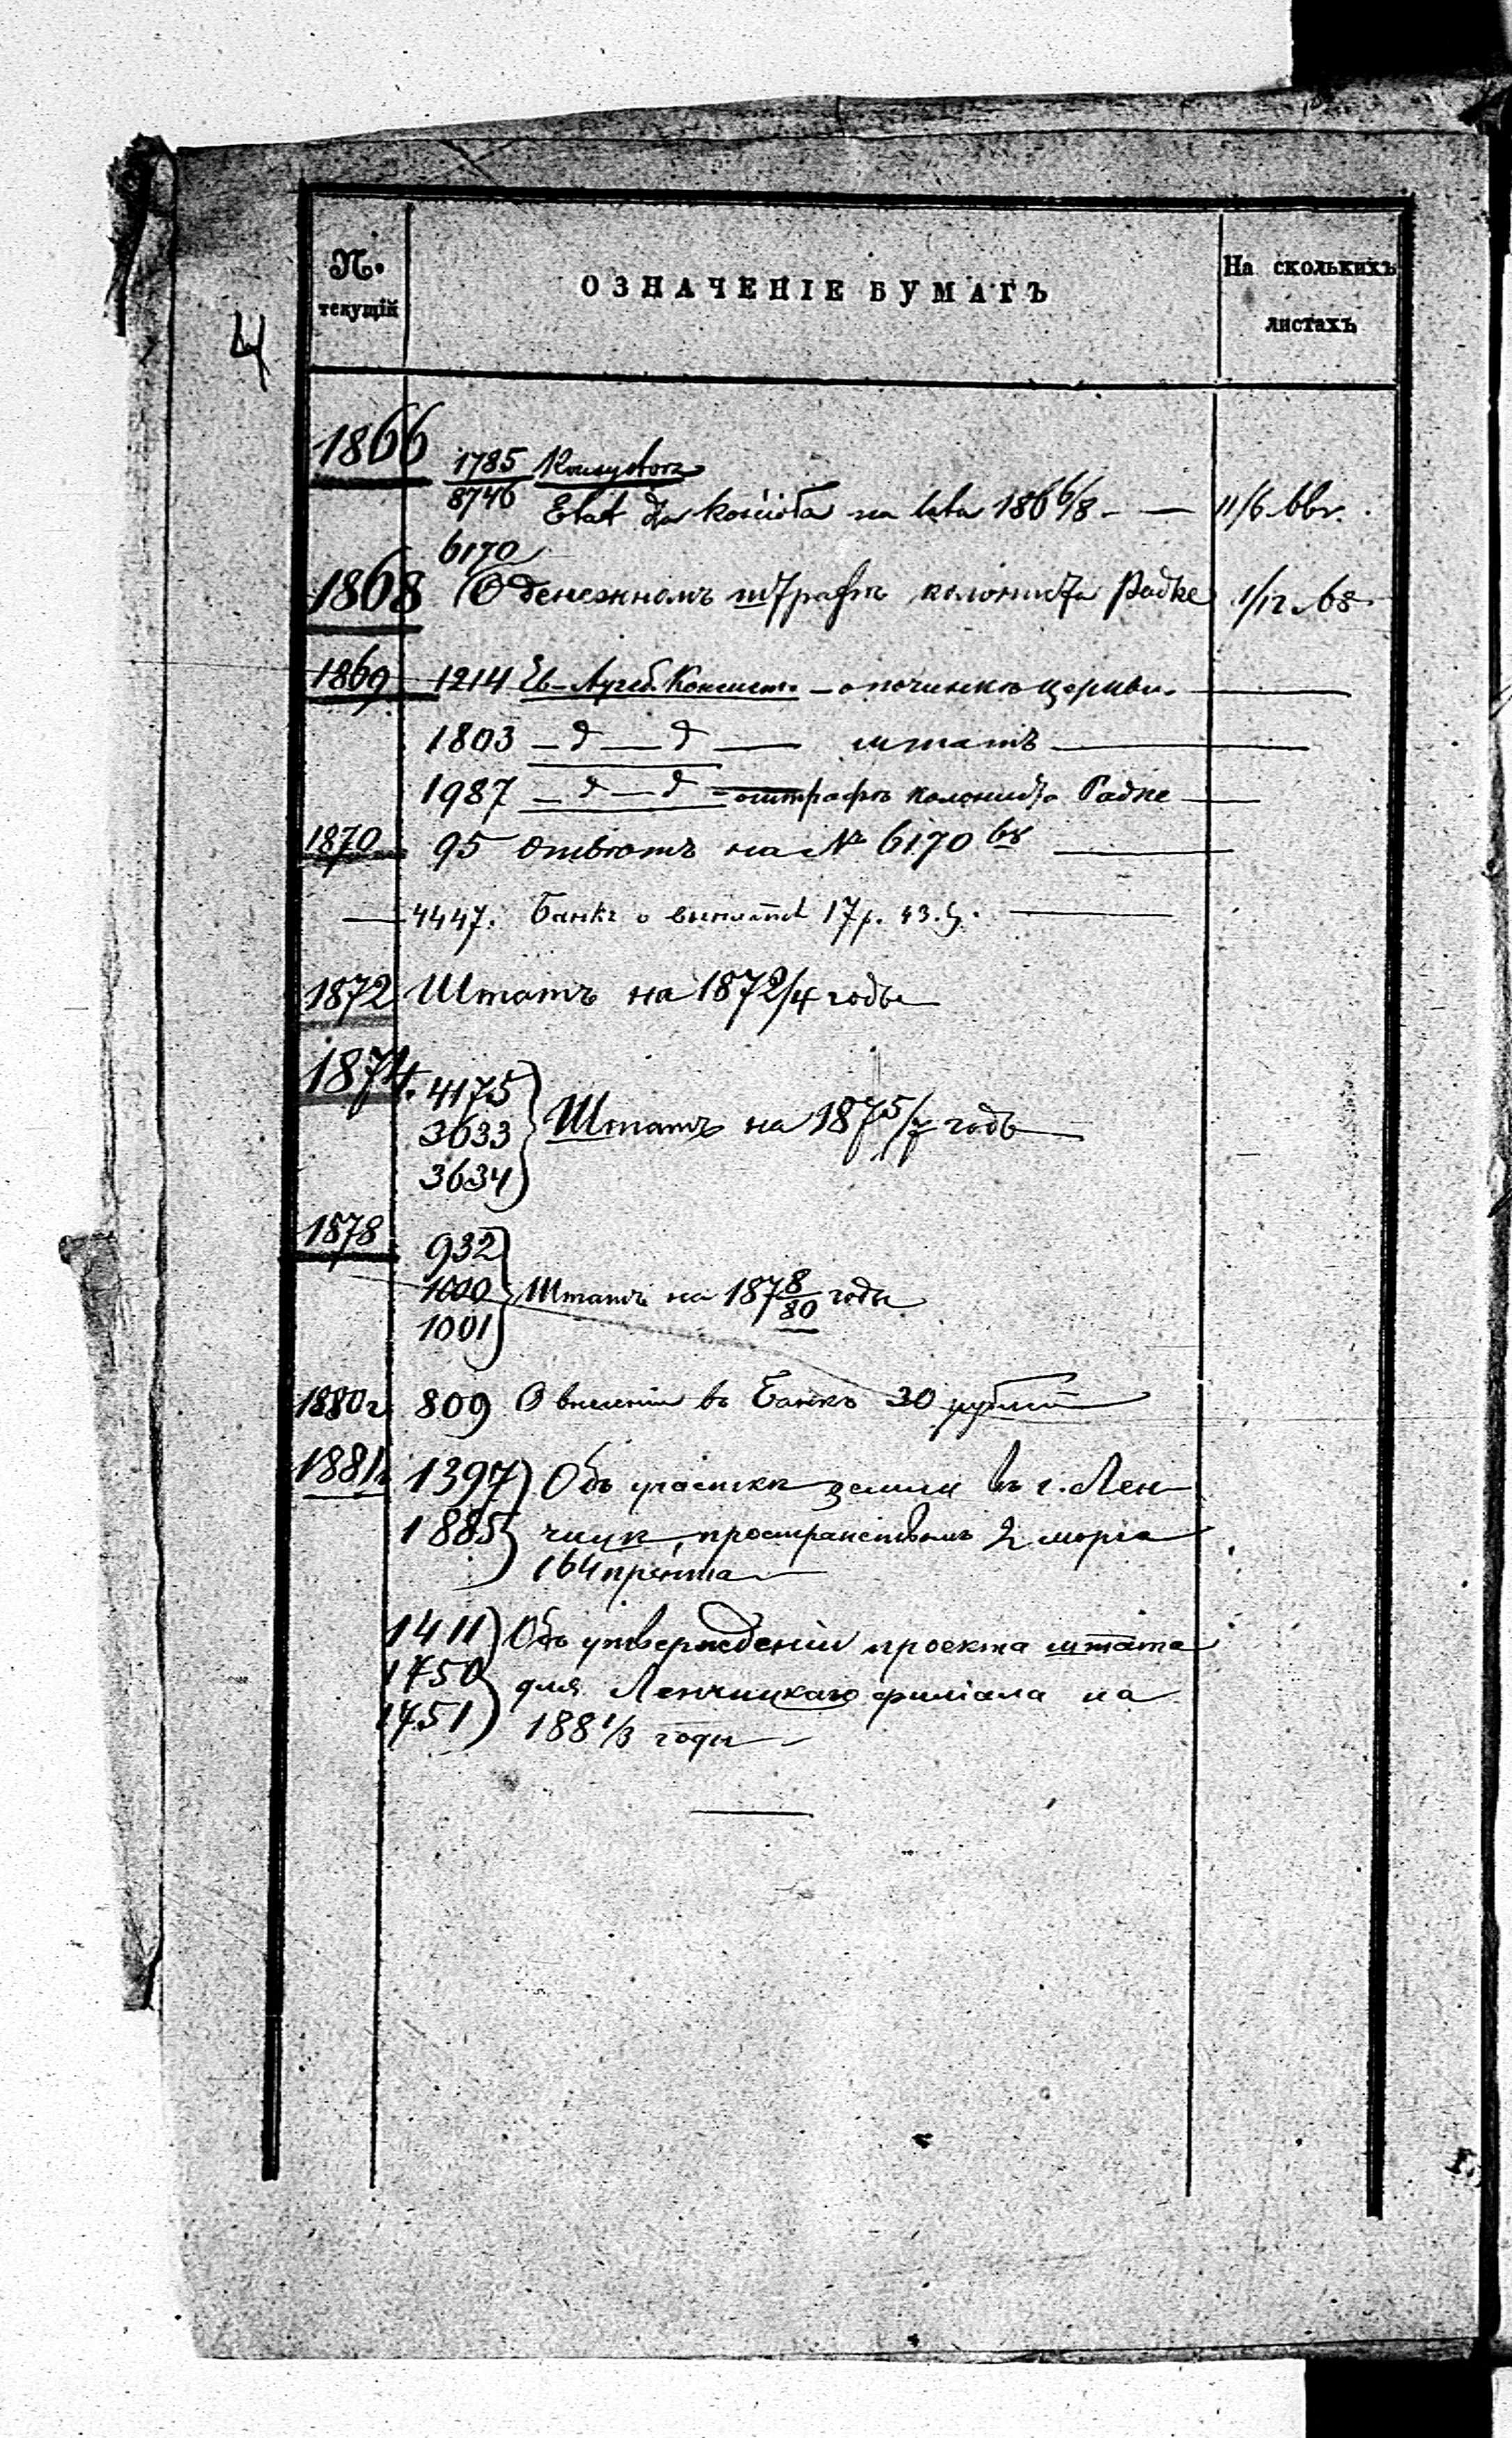 4
№. текущій
ОЗНАЧЕНІЕ БУМАГЪ
На сколькихъ листахъ
1866
1785 Konsystorz
8746 Etat dla kościoła na lata 186 6/8 — 11/6 66r.
6170
1868 О денежномъ штрафѣ колониста Радке 1/12 68
1869 1214 Ев-Аугсб. Консист. – о починкѣ церкви.
1803 — д — д — штатъ
1987 — д — д – о штрафѣ колониста Радке
1870 95 Отвѣтъ на № 6170 68
4447. Банкъ о 17 р. 43
1872 Штатъ на 1872/4 годы
1874. 4175
3633 Штатъ на 187 5/7 годы
3634
1878 932
1000 Штатъ на 187 8/80 годы
1001
1880г 809 О внесеніи въ Банкъ 30 рублей
1881г 1397 Объ участкѣ земли въ г. Лен
1885 чицѣ, пространствомъ 2 морга
164 прента
1411 Объ утвержденіи проекта штата
1750 для Ленчицкаго филіала на
1751 188 1/3 годы